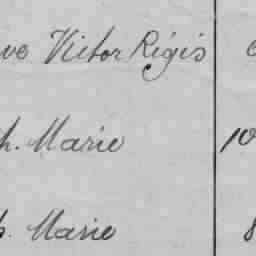 ve Victor Régis
h. Marie 10
h. Marie 8